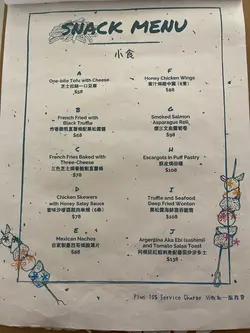 SNACK MENU
小食
A
One-bite Tofu with Cheese
芝士拉絲一口豆腐
$58
B
French Fried with
Black Truffle
炸香脆粗直薯條配黑松露醬
$68
C
French Fries Baked with
Three-Cheese
三色芝士焗香脆粗直薯條
$78
D
Chicken Skewers
with Honey Satay Sauce
$68
E
Mexican Nachos
$68
F
Honey Chicken Wings
$68
G
Smoked Salmon
Asparagus Roll
煙三文魚蘆筍卷
$98
H
Escargots in Puff Pastry
酥皮焗田螺
$108
I
Truffle and Seafood
Deep Fried Wonton
黑松露海鮮脆炸雲吞
$118
J
Argentina Aka Ebi (sashimi)
and Tomato Salsa Toast
$138
Plus 10% Service Charge 另收加一服務費